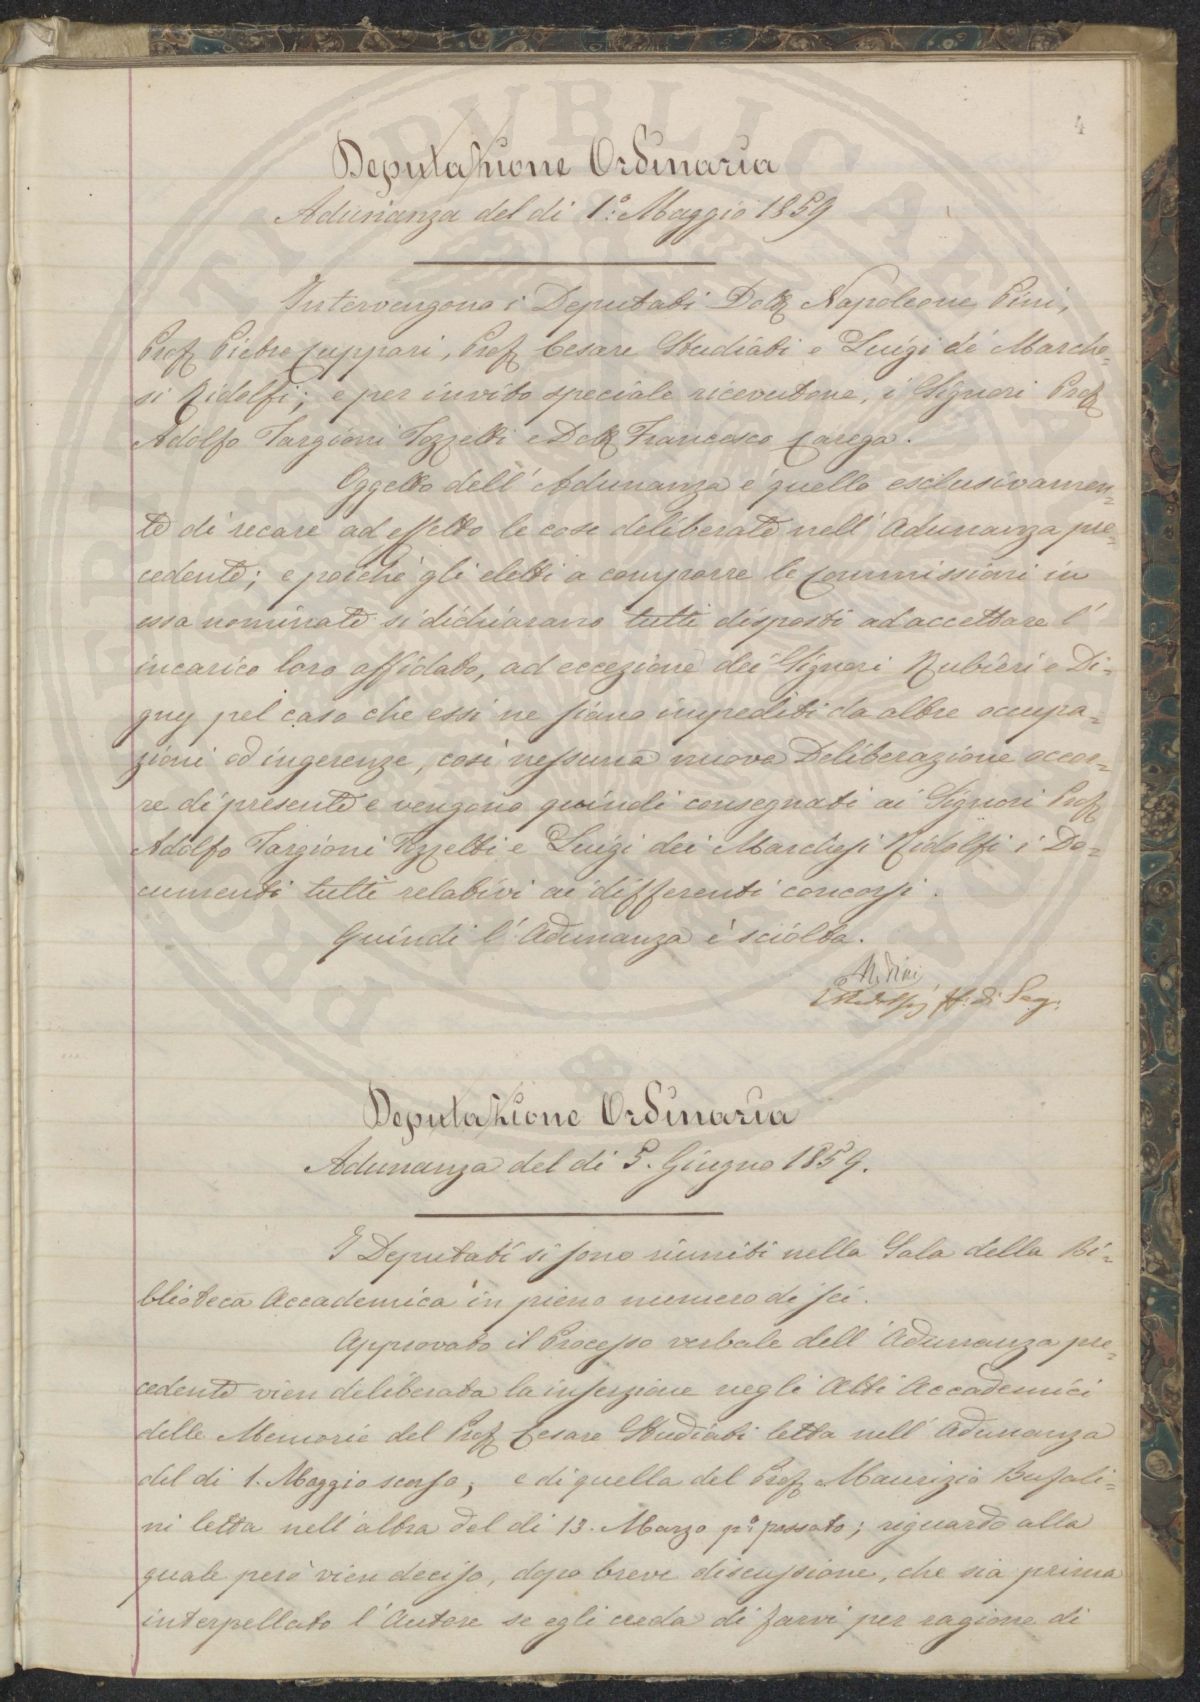 4
Deputazione Ordinaria
Adunanza del di 1.º Maggio 1859
Intervengono i Deputati Dott Napoleone Pini,
Prof Pietro Cuppari, Prof Cesare Studiati e Luigi de' Marche=
si Ridolfi; e per invito speciale ricevutone, i Signori Prof
Adolfo Targioni Tozzetti e Dott Francesco Carega.
Oggetto dell' Adunanza è quello esclusivamen=
te di recare ad effetto le cose deliberate nell' Adunanza pre=
cedente; e poichè gli eletti a comporre le Commissioni in
essa nominate si dichiarano tutti disposti ad accettare l'
incarico loro affidato, ad eccezione dei Signori Rubieri e Di=
gny pel caso che essi ne siano impediti da altre occupa=
zioni ed ingerenze, così nessuna nuova Deliberazione occor=
re di presente e vengono quindi consegnati ai Signori Prof
Adolfo Targioni Tozzetti e Luigi dei Marchesi Ridolfi i Do=
cumenti tutti relativi ai differenti concorsi.
Quindi l' Adunanza è sciolta.
N. Pini
L Ridolfi ff. di Seg:
Deputazione Ordinaria
Adunanza del di 5. Giugno 1859.
I Deputati si sono riuniti nella Sala della Bi=
blioteca Accademica in pieno numero di sei.
Approvato il Processo verbale dell' Adunanza pre=
cedente vien deliberata la inserzione negli Atti Accademici
delle Memorie del Prof Cesare Studiati letta nell' Adunanza
del di 1. Maggio scorso, e di quella del Prof Maurizio Bufali=
ni letta nell' altra del di 13. Marzo p.º passato; riguardo alla
quale però vien deciso, dopo breve discussione, che sia prima
interpellato l' Autore se egli creda di farvi per ragione di